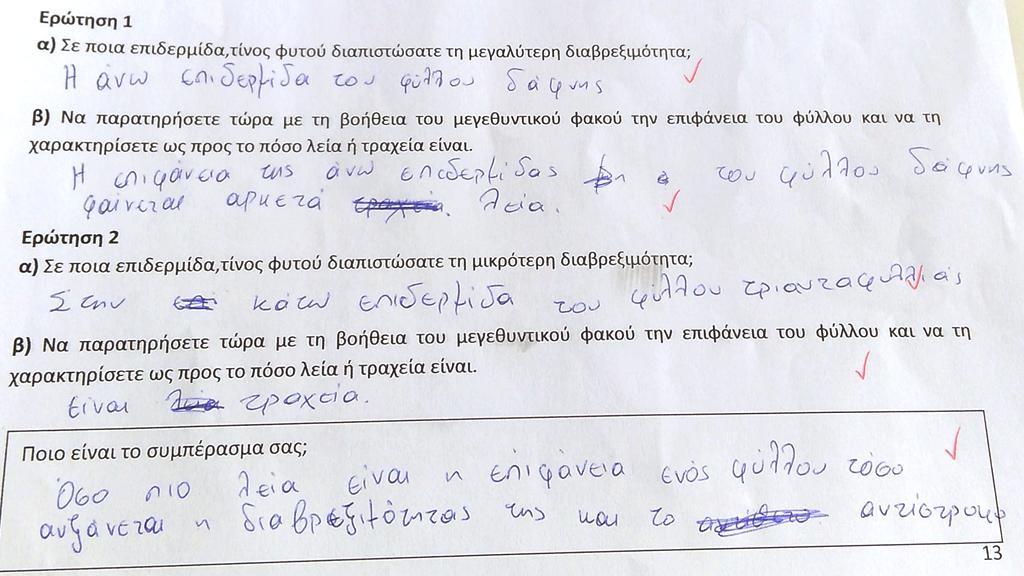 Ερώτηση 1
α) Σε ποια επιδερμίδα,τίνος φυτού διαπιστώσατε τη μεγαλύτερη διαβρεξιμότητα;
Η άνω επιδερμίδα του φύλλου δάφνης
β) Να παρατηρήσετε τώρα με τη βοήθεια του μεγεθυντικού φακού την επιφάνεια του φύλλου και να τη
χαρακτηρίσετε ως προς το πόσο λεία ή τραχεία είναι.
Η επιφάνεια της άνω επιδερμίδας του φύλλου δάφνης
φαίνεται αρκετά τραχεία. λεία.
Ερώτηση 2
α) Σε ποια επιδερμίδα,τίνος φυτού διαπιστώσατε τη μικρότερη διαβρεξιμότητα;
Στην κάτω επιδερμίδα του φύλλου τριανταφυλλιάς
β) Να παρατηρήσετε τώρα με τη βοήθεια του μεγεθυντικού φακού την επιφάνεια του φύλλου και να τη
χαρακτηρίσετε ως προς το πόσο λεία ή τραχεία είναι.
Είναι λεία τραχεία.
Ποιο είναι το συμπέρασμα σας;
Όσο πιο λεία είναι η επιφάνεια ενός φύλλου τόσο
αυξάνεται η διαβρεξιμότητας της και το αντίστροφο
13